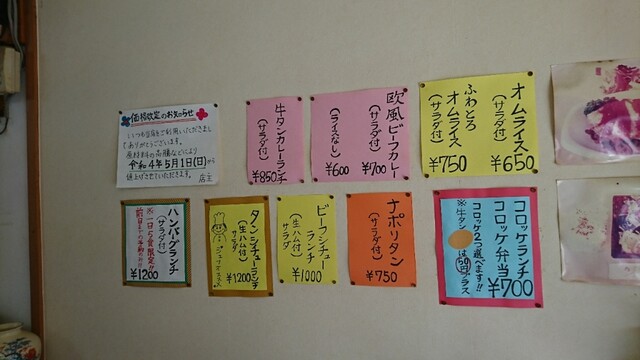 価格改定のお知らせ
いつも当店をご利用いただきまして
ありがとうございます。
原材料の高騰などにより
令和4年5月1日(日)から
値上げさせていただきます。
店主
牛タンカレーランチ
(サラダ付)
¥850
欧風ビーフカレー
(サラダ付)
¥700
(ライスなし)
¥600
オムライス
(サラダ付)
¥650
ふわとろ
オムライス
(サラダ付)
¥750
ハンバーグランチ
(サラダ付)
※一日5食限定!!
¥1200
タンシチューランチ
(生ハム付)
サラダ
¥1200
ビーフシチュー
ランチ
(生ハム付)
サラダ
¥1000
ナポリタン
(サラダ付)
¥750
コロッケランチ
コロッケ弁当
¥700
コロッケ2つ選べます!!
※牛タン
は50円プラス